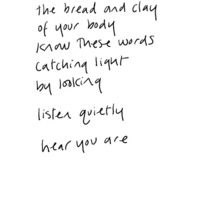 the bread and clay
of your body
know these words
catching light
by looking
listen quietly
hear you are